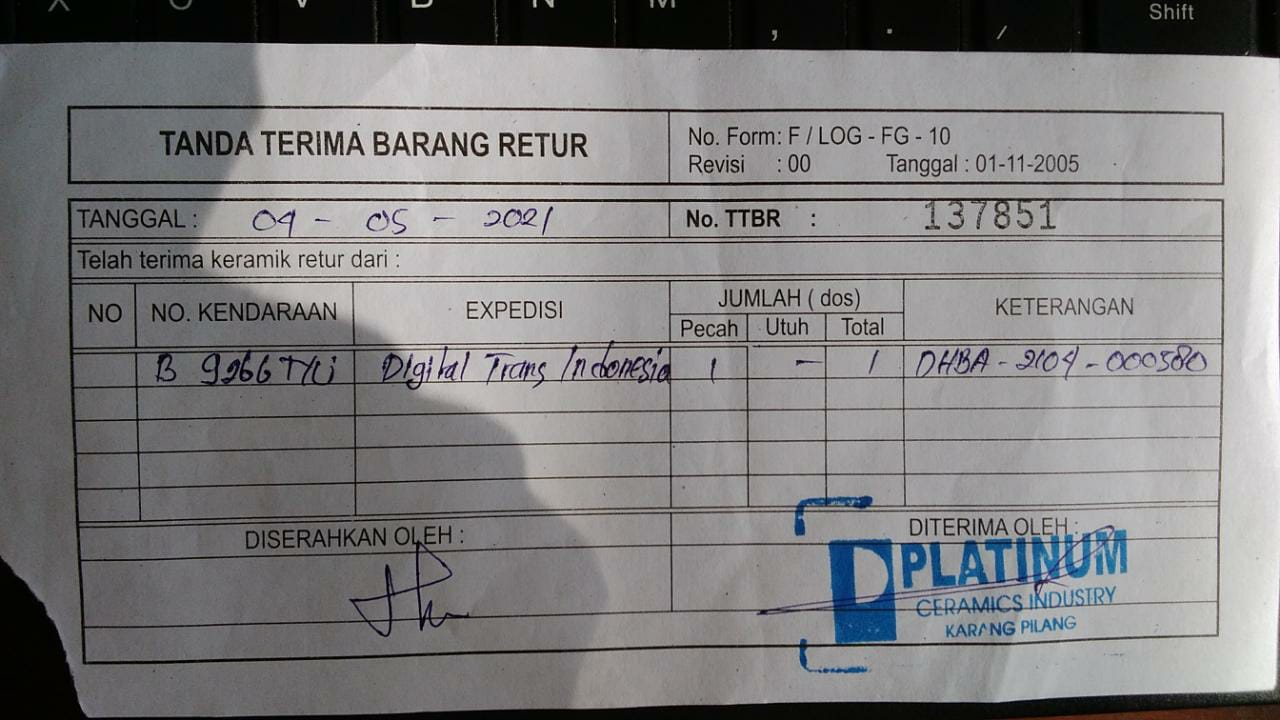 X C V B N M , . / Shift
TANDA TERIMA BARANG RETUR
No. Form: F / LOG - FG - 10
Revisi : 00 Tanggal : 01-11-2005
TANGGAL : 04 - 05 - 2021
No. TTBR : 137851
Telah terima keramik retur dari :
NO NO. KENDARAAN EXPEDISI JUMLAH ( dos) KETERANGAN
Pecah Utuh Total
B 9266 Digital Trans Indonesia 1 - 1 DHBA - 2104 - 000580
DISERAHKAN OLEH :
DITERIMA OLEH :
PLATINUM
CERAMICS INDUSTRY
KARANG PILANG